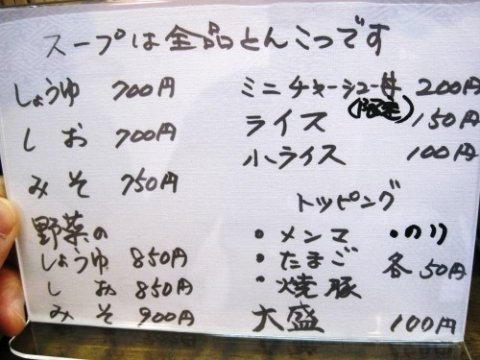 スープは全品とんこつです
しょうゆ 700円
しお 700円
みそ 750円
野菜の
しょうゆ 850円
しお 850円
みそ 900円
ミニチャーシュー丼 200円
(限定)
ライス 150円
小ライス 100円
トッピング
・メンマ ・のり
・たまご 各50円
・焼豚
大盛 100円